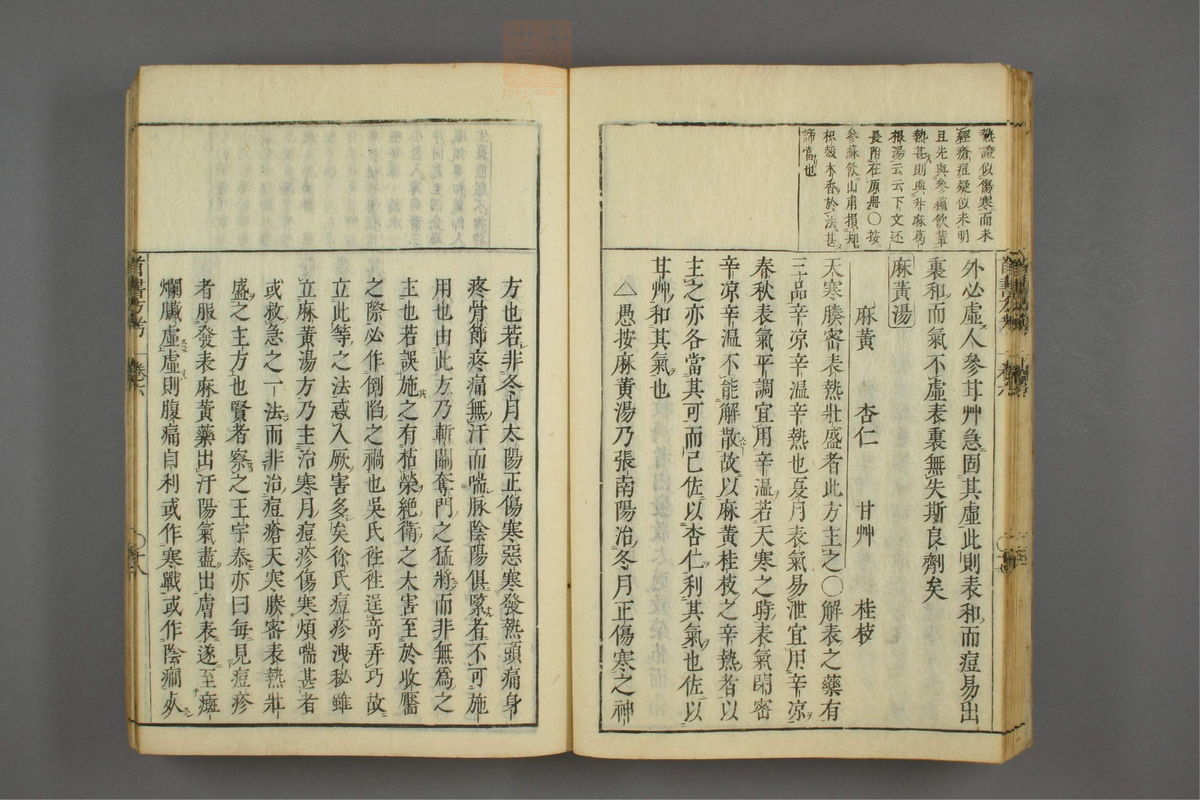 熱證似傷寒而未
經瘡痘疑似未明
且先與參蘇飲輩
熱甚則與升麻葛
根湯云云下文还
長附在原冊〇按
參蘇飲山甫損却
枳殼木香於法甚
諦當也
外必虛人參芪艸急固其虛此則表和而痘易出
裏和而氣不虛表裏無失斯良劑矣
麻黃湯
麻黃 杏仁 甘艸 桂枝
天寒勝密表熱壯盛者此方主之〇解表之藥有
三品辛凉辛温辛熱也夏月表氣易泄宜用辛凉
春秋表氣平調宜用辛温若天寒之時表氣閉密
辛凉辛温不能解散故以麻黃桂枝之辛熱者以
主之亦各當其可而已佐以杏仁利其氣也佐以
甘艸和其氣也
△愚按麻黃湯乃張南陽治冬月正傷寒之神
方也若非冬月太陽正傷寒惡寒發熱頭痛身
疼骨節疼痛無汗而喘脉陰陽俱緊者不可施
用也由此方乃斬關奪門之猛將而非無為之
主也若誤施之有枯榮絶衛之大害至於收靨
之際必作倒陷之禍也吳氏徃徃逞奇弄巧故
立此等之法惑入厥害多矣徐氏痘疹洩秘雖
立麻黃湯方乃主治寒月痘疹傷寒煩喘甚者
或救急之一法而非治痘瘡天寒勝密表熱壯
盛之主方也賢者察之王宇泰亦曰每見痘疹
者服發表麻黃藥出汗陽氣盡出膚表遂至癍
爛臟虛虛則腹痛自利或作寒戰或作陰癇
卷六